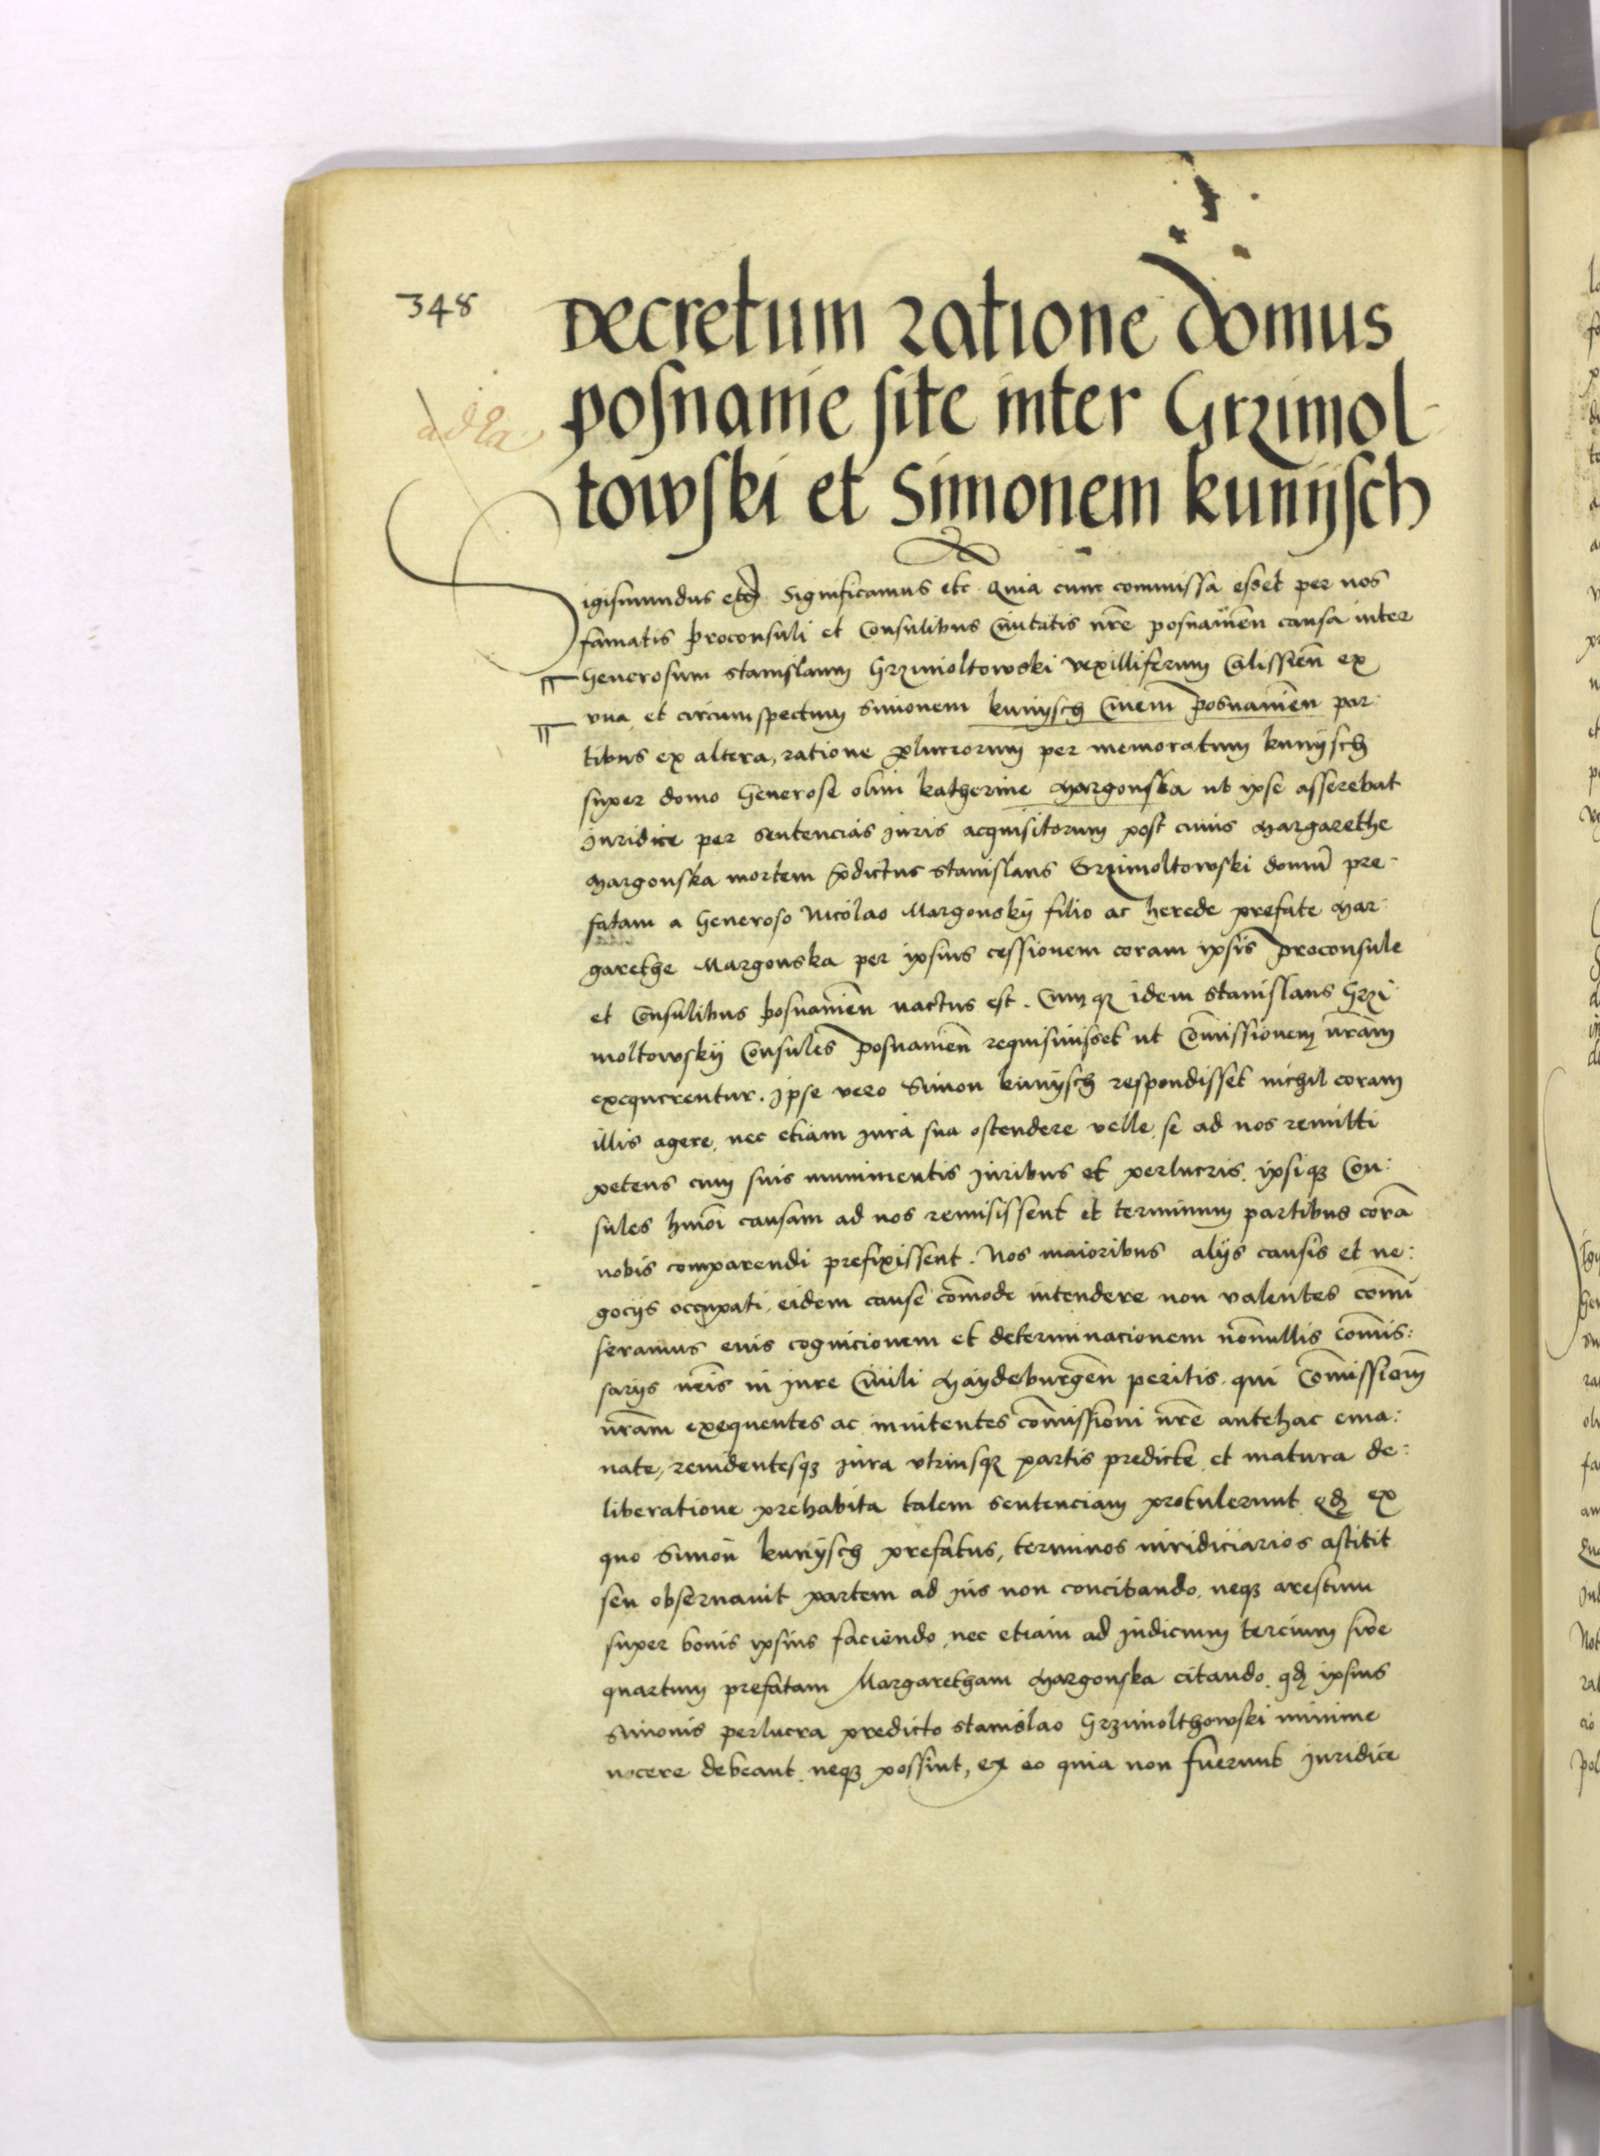 348
Decretum ratione domus
posnanie site inter Grzimol-
towski et Simonem kunijsch
Sigismundus etc Significamus etc Quia cum commissa esset per nos
famatis proconsuli et Consulibus Civitatis nr̄e posnanień causa inter
Generosum Stanislaum Grzimoltowski vexilliferum Calissień ex
vna et circumspectum Simonem kunijsch Civem Posnanień par-
tibus ex altera, ratione perlucrorum per memoratum kunijsch
super domo Generose olim katherine Margonska ut ipse asserebat
Juridice per sentencias Juris acquisitorum post cuius Margarethe
Margonska mortem predictus Stanislaus Grzimoltowski domum pre-
fatam a Generoso Nicolao Margonskij filio ac herede prefate Mar-
garethe Margonska per ipsius cessionem coram ipsis proconsule
et Consulibus posnanień nactus est. Cumqz idem Stanislaus Grzi-
moltowskij Consules Posnanień requisiuisset ut Com̄issionem nr̄am
exequerentur. Ipse vero Simon kunijsch respondisset nichil coram
illis agere, nec etiam Jura sua ostendere velle, se ad nos remitti
petens cum suis munimentis Juribus et perlucris. ipsiqz Con:
sules hmōi causam ad nos remisissent et terminum partibus corā
nobis comparendi prefixissent. Nos maioribus alijs causis et ne:
gocijs occupati, eidem cause com̄ode intendere non valentes com̄i
seramus eius cognicionem et determinacionem nōnullis com̄is:
sarijs nr̄is in Jure Ciuili Maydeburgeń peritis. qui Com̄issionē
nr̄am exequentes ac innitentes com̄issioni nr̄e antehac ema:
nate, reuidentesqz Jura vtriusqz partis predicte et matura de:
liberatione prehabita talem sentenciam protulerunt qđ ex
quo Simon kunijsch prefatus, terminos iuridiciarios astitit
seu obseruauit partem ad Jus non concitando, neqz arestum
super bonis ipsius faciendo, nec etiam ad Judicium tercium siue
quartum prefatam Margaretham Margonska citando. qđ ipsius
Simonis perlucra predicto Stanislao Grzimolthowski minime
nocere debeant, neqz possint, ex eo quia non fuerunt Juridice